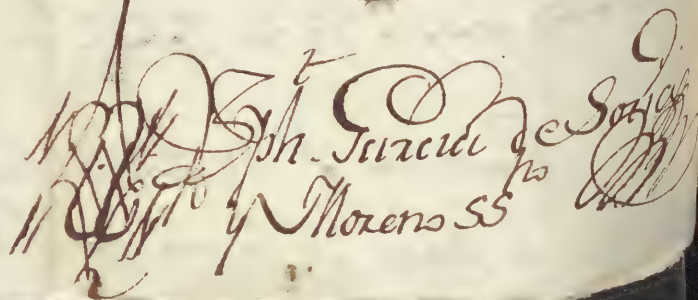 Jph. Garcia de Soria
y Moreno SSno